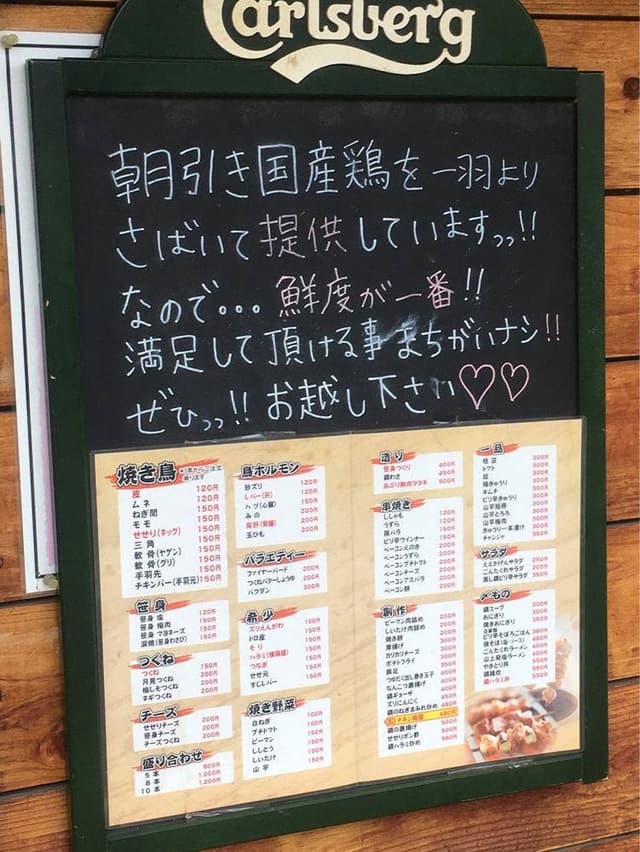 Carlsberg
朝引き国産鶏を一羽より
さばいて提供していますっっ!!
なので... 鮮度が一番!!
満足して頂ける事まちがいナシ!!
ぜひっっ!! お越し下さい♡♡
焼き鳥
皮 120円
ムネ 120円
ねぎ間 150円
モモ 150円
せせり(ネック) 150円
三角 150円
軟骨(ヤゲン) 150円
軟骨(グリ) 150円
手羽先 150円
チキンバー(手羽元) 150円
笹身
笹身 塩 120円
笹身 梅肉 150円
笹身 マヨネーズ 150円
炭焼(笹身わさび) 150円
つくね
つくね 150円
月見つくね 200円
梅しそつくね 200円
ネギつくね 200円
チーズ
せせりチーズ 200円
笹身チーズ 200円
チーズつくね 200円
盛り合わせ
5本 600円
8本 1,000円
10本 1,200円
鳥ホルモン
砂ズリ 120円
レバー(肝) 120円
ハツ(心臓) 150円
みの 200円
背肝(腎臓) 200円
玉ひも 200円
バラエティー
ファイヤーバード 200円
つくねバターしょうゆ 200円
バクダン 300円
希少
ズリえんがわ 150円
トロ皮 150円
そり 150円
ハラミ(横隔膜) 150円
つなぎ 150円
せせ元 150円
すじレバー 150円
焼き野菜
白ねぎ 150円
プチトマト 150円
ピーマン 150円
ししとう 150円
しいたけ 150円
山芋 150円
造り
笹身つくり 400円
鶏わさ 450円
あぶり胸肉タタキ 500円
串焼き
ししゃも
うずら
豚バラ
ピリ辛ウインナー
ベーコンえのき
ベーコンうずら
ベーコンプチトマト
ベーコンチーズ
ベーコンアスパラ
ベーコン餅
創作
ピーマン肉詰め
しいたけ肉詰め
焼き餅
厚揚げ
カリカリチーズ
ポテトフライ
豚足
つゆだく出し巻き玉子
なんこつ唐揚げ
鶏ギョーザ
ズリにんにく
鶏のねぎまみれ炒め
チキン南蛮 480円
鶏の唐揚げ 500円
せせりポン酢 500円
鶏ハラミ炒め 580円
一品
枝豆 300円
トマト 300円
キムチ
ピリ辛きゅうり
山芋短冊
山芋とろろ
山芋梅肉
きゅうり一本漬け
チャンジャ
サラダ
ごんたくれサラダ
蒸し鶏ピリ辛サラダ
〆もの
鶏スープ 200円
おにぎり
焼きおにぎり
ピリ辛そぼろごはん
焼そば(塩・ソース)
ごんたくれラーメン
山上発塩ラーメン
やきとり丼
鶏雑炊
鶏ハラミ丼